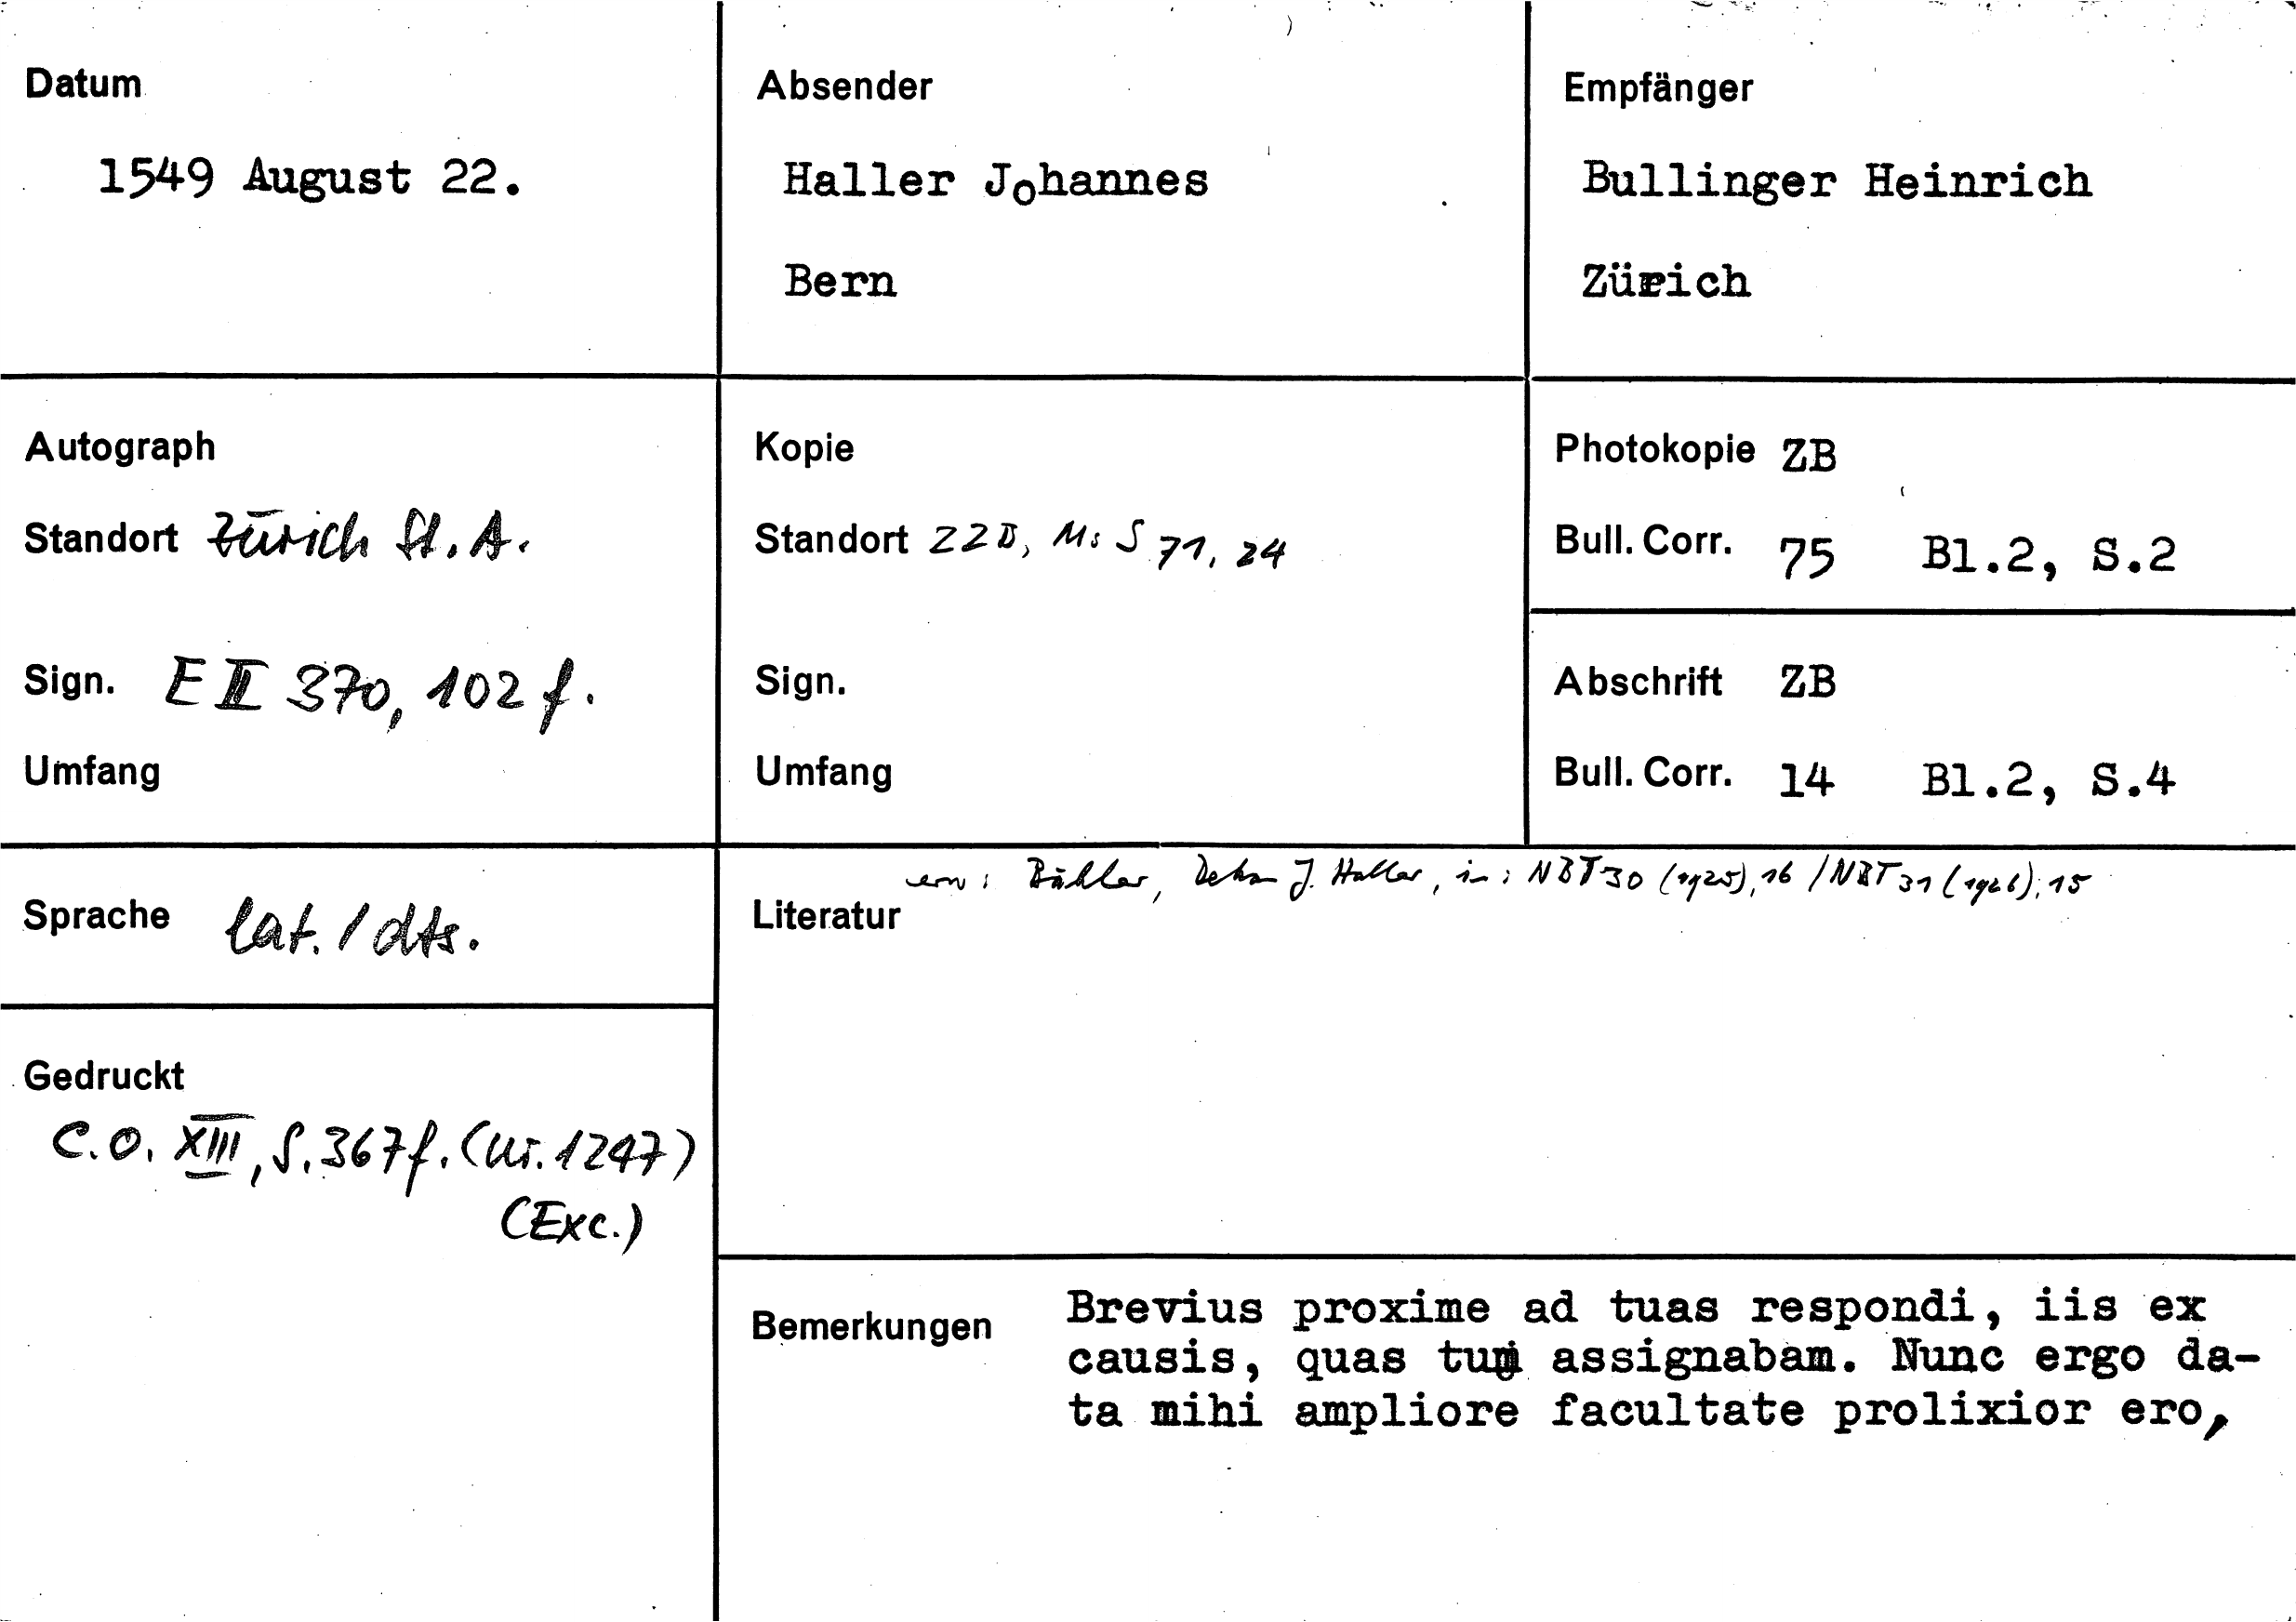 Datum
1549 August 22.
Absender
Haller Johannes
Bern
Empfänger
Bullinger Heinrich
Zürich
Autograph
Standort Zürich St. A.
Sign. E II 370, 102 f.
Umfang
Kopie
Standort ZZB, Ms S 71, 24
Sign.
Umfang
Photokopie ZB
Bull. Corr. 75 Bl.2, S.2
Abschrift ZB
Bull. Corr. 14 Bl.2, S.4
Sprache lat. / dts.
Gedruckt
C.O. XIII, S. 367 f. (Nr. 1247)
(Exc.)
Literatur
erw: Bähler, Dekan J. Haller, in: NBT 30 (1925), 16 / NBT 31 (1926), 15
Bemerkungen
Brevius proxime ad tuas respondi, iis ex
causis, quas tum assignabam. Nunc ergo da-
ta mihi ampliore facultate prolixior ero,